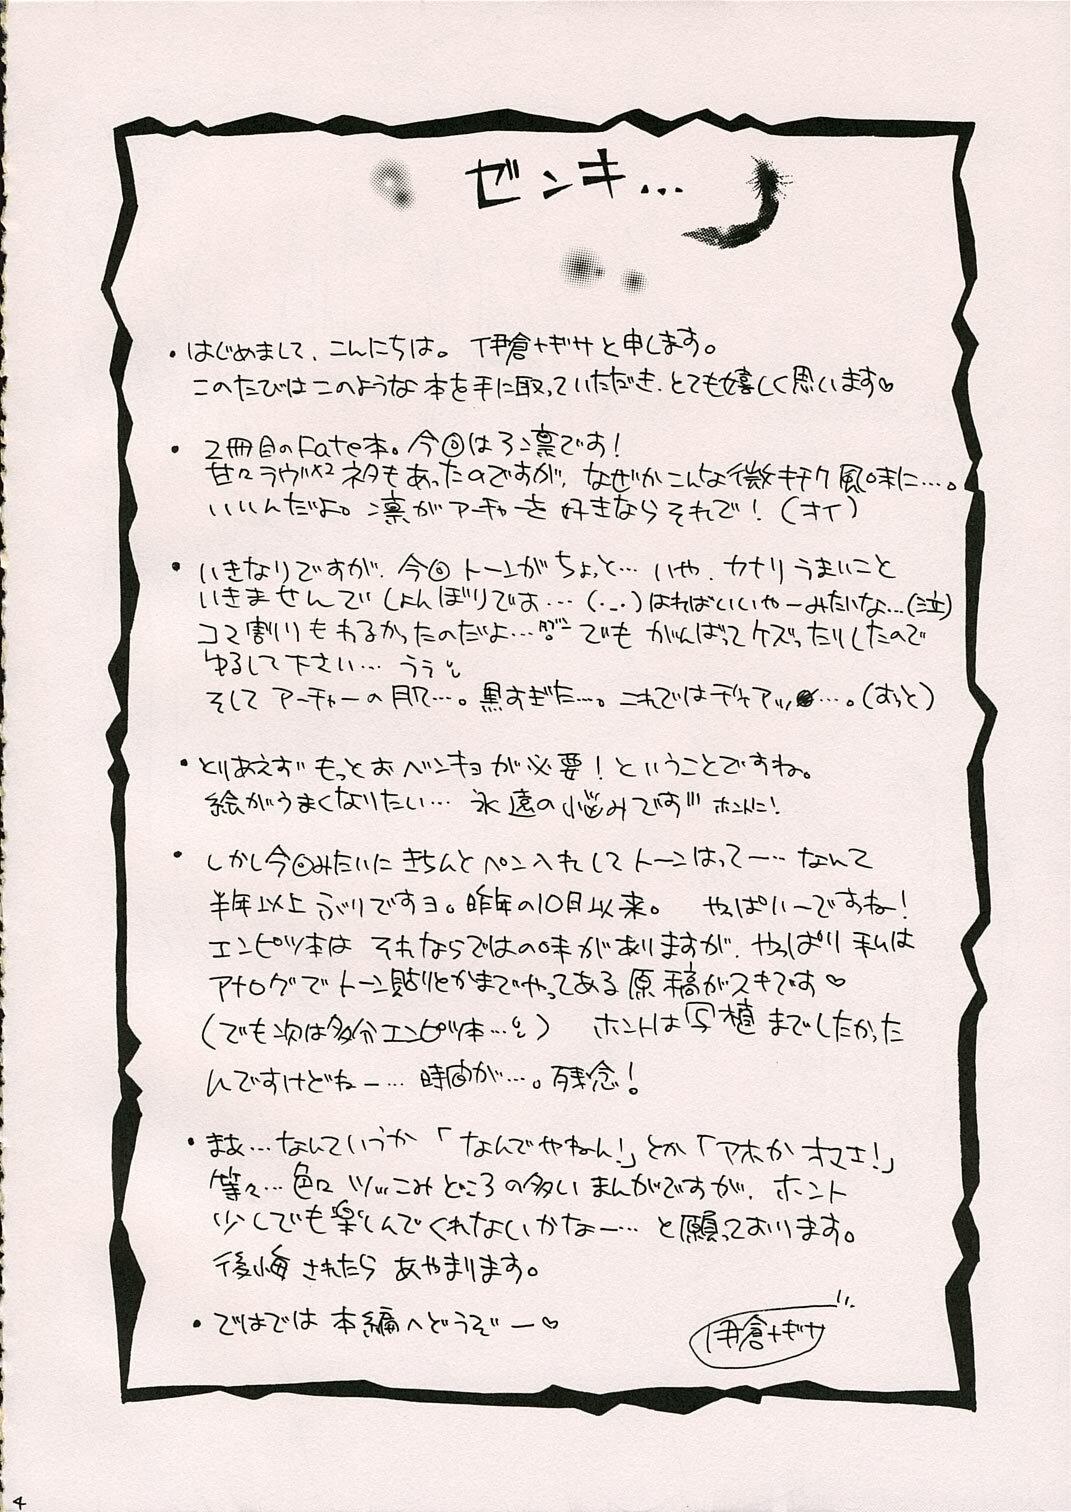 ゼンキ…
・はじめまして、こんにちは。伊倉ナギサと申します。
このたびはこのような本を手に取っていただき、とても嬉しく思います♡
・2冊目のFate本。今回は弓凛です!
甘々ラヴ×2ネタもあったのですが、なぜかこんな微キチク風味に…。
いいんだよ。凛がアーチャーを好きならそれで!(オイ)
・いきなりですが、今回トーンがちょっと…いや、カナリうまいこと
いきませんでしょんぼりです…(._.)はればいいやーみたいな…(泣)
コマ割りもわるかったのだよ…タブン でもがんばってケズったりしたので
ゆるして下さい…うぅ
そしてアーチャーの肌…。黒すぎた…。これでは…。(おっと)
・とりあえずもっとおベンキョが必要!ということですね。
絵がうまくなりたい…永遠の悩みです ホントに!
・しかし今回みたいにきちんとペン入れしてトーンはってー…なんて
半年以上ぶりですヨ。昨年の10月以来。 やっぱいーですね!
エンピツ本はそれならではの味がありますが、やっぱり私は
アナログでトーン貼りとかまでやってある原稿がスキです♡
(でも次は多分エンピツ本…) ホントは写植までしたかった
んですけどねー…時間が…。残念!
・まぁ…なんていうか「なんでやねん!」とか「アホかオマエ!」
等々…色々ツッこみどころの多いまんがですが、ホント
少しでも楽しんでくれないかなー…と願っております。
後悔されたらあやまります。
・ではでは本編へどうぞー♡
伊倉ナギサ
4